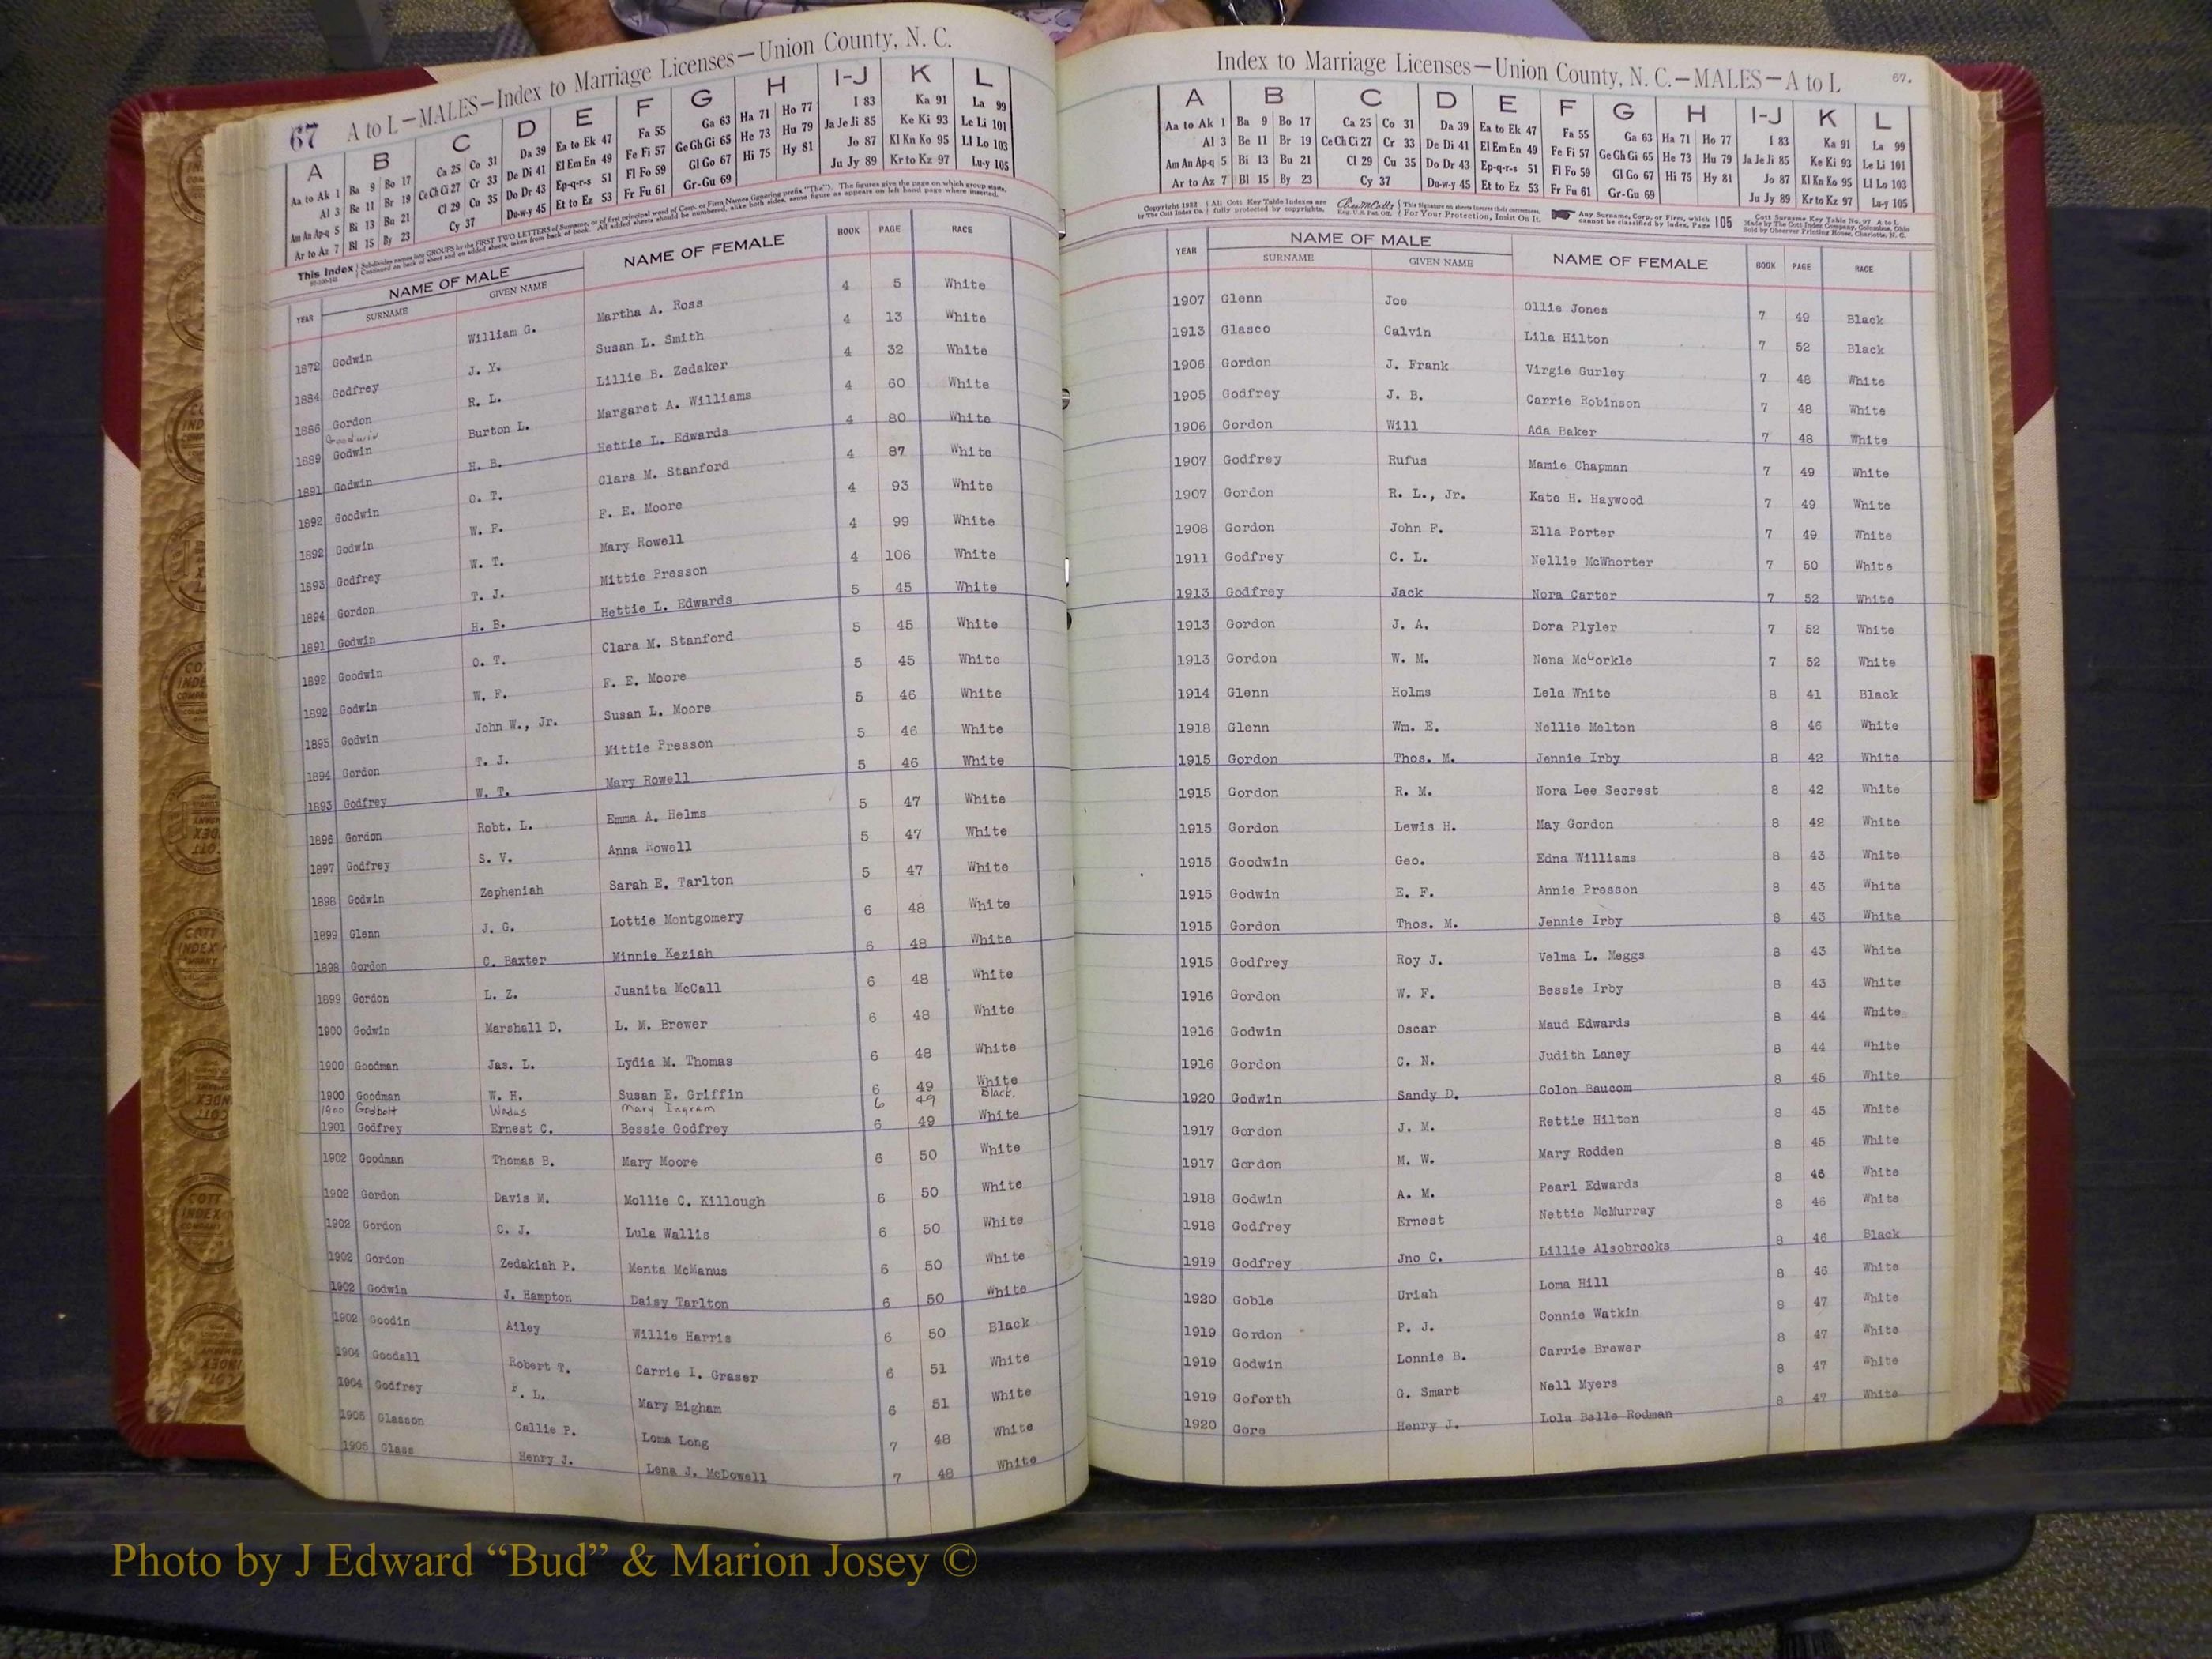 67 A to L—MALES—Index to Marriage Licenses—Union County, N. C.
A B C D E F G H I-J K L
Aa to Ak 1 Ba 9 Bo 17 Ca 25 Co 31 Da 39 Ea to Ek 47 Fa 55 Ga 63 Ha 71 Ho 77 I 83 Ka 91 La 99
Al 3 Be 11 Br 19 Ce Ch Ci 27 Cr 33 De Di 41 El Em En 49 Fe Fi 57 Ge Gh Gi 65 He 73 Hu 79 Ja Je Ji 85 Ke Ki 93 Le Li 101
Am An Ap-q 5 Bi 13 Bu 21 Cl 29 Cu 35 Do Dr 43 Ep-q-r-s 51 Fl Fo 59 Gl Go 67 Hi 75 Hy 81 Jo 87 Kl Kn Ko 95 Ll Lo 103
Ar to Az 7 Bl 15 By 23 Cy 37 Du-w-y 45 Et to Ez 53 Fr Fu 61 Gr-Gu 69 Ju Jy 89 Kr to Kz 97 Lu-y 105
This Index
YEAR NAME OF MALE NAME OF FEMALE BOOK PAGE RACE
SURNAME GIVEN NAME
1872 Godwin William G. Martha A. Ross 4 5 White
1884 Godfrey J. Y. Susan L. Smith 4 13 White
1886 Gordon R. L. Lillie B. Zedaker 4 32 White
Goodwin
1889 Godwin Burton L. Margaret A. Williams 4 60 White
1891 Godwin H. B. Hettie L. Edwards 4 80 White
1892 Goodwin O. T. Clara M. Stanford 4 87 White
1892 Godwin W. F. F. E. Moore 4 93 White
1893 Godfrey W. T. Mary Rowell 4 99 White
1894 Gordon T. J. Mittie Presson 4 106 White
1891 Godwin H. B. Hettie L. Edwards 5 45 White
1892 Goodwin O. T. Clara M. Stanford 5 45 White
1892 Godwin W. F. F. E. Moore 5 45 White
1895 Godwin John W., Jr. Susan L. Moore 5 46 White
1894 Gordon T. J. Mittie Presson 5 46 White
1893 Godfrey W. T. Mary Rowell 5 46 White
1896 Gordon Robt. L. Emma A. Helms 5 47 White
1897 Godfrey S. V. Anna Rowell 5 47 White
1898 Godwin Zepheniah Sarah E. Tarlton 5 47 White
1899 Glenn J. G. Lottie Montgomery 6 48 White
1898 Gordon C. Baxter Minnie Keziah 6 48 White
1899 Gordon L. Z. Juanita McCall 6 48 White
1900 Godwin Marshall D. L. M. Brewer 6 48 White
1900 Goodman Jas. L. Lydia M. Thomas 6 48 White
1900 Goodman W. H. Susan E. Griffin 6 49 White
1900 Godbolt Wadus Mary Ingram 6 49 Black.
1901 Godfrey Ernest C. Bessie Godfrey 6 49 White
1902 Goodman Thomas B. Mary Moore 6 50 White
1902 Gordon Davis M. Mollie C. Killough 6 50 White
1902 Gordon C. J. Lula Wallis 6 50 White
1902 Gordon Zedakiah P. Menta McManus 6 50 White
1902 Godwin J. Hampton Daisy Tarlton 6 50 White
1902 Goodin Ailey Willie Harris 6 50 Black
1904 Goodall Robert T. Carrie I. Graser 6 51 White
1904 Godfrey F. L. Mary Bigham 6 51 White
1905 Glasson Callie P. Loma Long 7 48 White
1905 Glass Henry J. Lena J. McDowell 7 48 White
Index to Marriage Licenses—Union County, N. C.—MALES—A to L 67.
A B C D E F G H I-J K L
Aa to Ak 1 Ba 9 Bo 17 Ca 25 Co 31 Da 39 Ea to Ek 47 Fa 55 Ga 63 Ha 71 Ho 77 I 83 Ka 91 La 99
Al 3 Be 11 Br 19 Ce Ch Ci 27 Cr 33 De Di 41 El Em En 49 Fe Fi 57 Ge Gh Gi 65 He 73 Hu 79 Ja Je Ji 85 Ke Ki 93 Le Li 101
Am An Ap-q 5 Bi 13 Bu 21 Cl 29 Cu 35 Do Dr 43 Ep-q-r-s 51 Fl Fo 59 Gl Go 67 Hi 75 Hy 81 Jo 87 Kl Kn Ko 95 Ll Lo 103
Ar to Az 7 Bl 15 By 23 Cy 37 Du-w-y 45 Et to Ez 53 Fr Fu 61 Gr-Gu 69 Ju Jy 89 Kr to Kz 97 Lu-y 105
YEAR NAME OF MALE NAME OF FEMALE BOOK PAGE RACE
SURNAME GIVEN NAME
1907 Glenn Joe Ollie Jones 7 49 Black
1913 Glasco Calvin Lila Hilton 7 52 Black
1906 Gordon J. Frank Virgie Gurley 7 48 White
1905 Godfrey J. B. Carrie Robinson 7 48 White
1906 Gordon Will Ada Baker 7 48 White
1907 Godfrey Rufus Mamie Chapman 7 49 White
1907 Gordon R. L., Jr. Kate H. Haywood 7 49 White
1908 Gordon John F. Ella Porter 7 49 White
1911 Godfrey C. L. Nellie McWhorter 7 50 White
1913 Godfrey Jack Nora Carter 7 52 White
1913 Gordon J. A. Dora Plyler 7 52 White
1913 Gordon W. M. Nena McCorkle 7 52 White
1914 Glenn Holms Lela White 8 41 Black
1918 Glenn Wm. E. Nellie Melton 8 46 White
1915 Gordon Thos. M. Jennie Irby 8 42 White
1915 Gordon R. M. Nora Lee Secrest 8 42 White
1915 Gordon Lewis H. May Gordon 8 42 White
1915 Goodwin Geo. Edna Williams 8 43 White
1915 Godwin E. F. Annie Presson 8 43 White
1915 Gordon Thos. M. Jennie Irby 8 43 White
1915 Godfrey Roy J. Velma L. Meggs 8 43 White
1916 Gordon W. F. Bessie Irby 8 43 White
1916 Godwin Oscar Maud Edwards 8 44 White
1916 Gordon C. N. Judith Laney 8 44 White
1920 Godwin Sandy D. Colon Baucom 8 45 White
1917 Gordon J. M. Rettie Hilton 8 45 White
1917 Gordon M. W. Mary Rodden 8 45 White
1918 Godwin A. M. Pearl Edwards 8 46 White
1918 Godfrey Ernest Nettie McMurray 8 46 White
1919 Godfrey Jno C. Lillie Alsobrooks 8 46 Black
1920 Goble Uriah Loma Hill 8 46 White
1919 Gordon P. J. Connie Watkin 8 47 White
1919 Godwin Lonnie B. Carrie Brewer 8 47 White
1919 Goforth G. Smart Nell Myers 8 47 White
1920 Gore Henry J. Lola Belle Rodman 8 47 White
Photo by J Edward “Bud” & Marion Josey ©